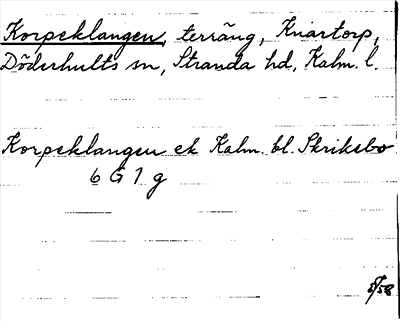 Korpeklangen, terräng, Kvartorp,
Döderhults sn, Stranda hd, Kalm. l.
Korpeklangen ek Kalm. bl. Skriksbo
6 G 1 g
5/58